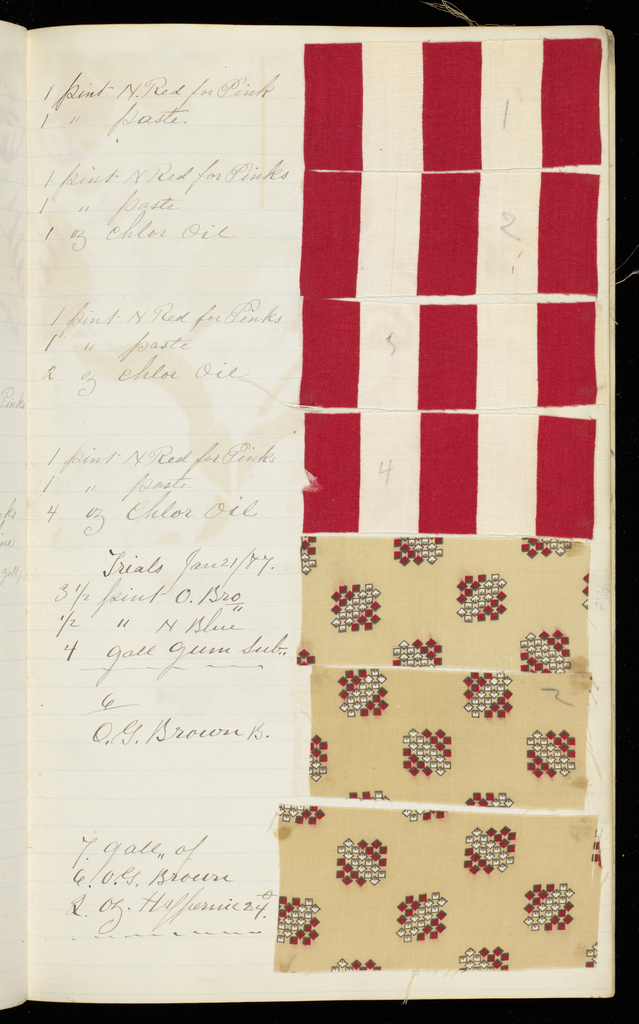 1 pint N. Red for Pink
1 " paste.
1
1 pint N Red for Pinks
1 " paste
1 oz Chlor Oil
2
1 pint N Red for Pinks
1 " paste
2 oz Chlor Oil
3
1 pint N Red for Pinks
1 " paste
4 oz Chlor Oil
4
Trials Jan 21/87.
3 1/2 pint O. Bro
1/2 " N Blue
4 gall Gum Sub.
6
O.G. Brown B.
2
7. gall of
6. O.G. Brown
2. oz.
Pinks